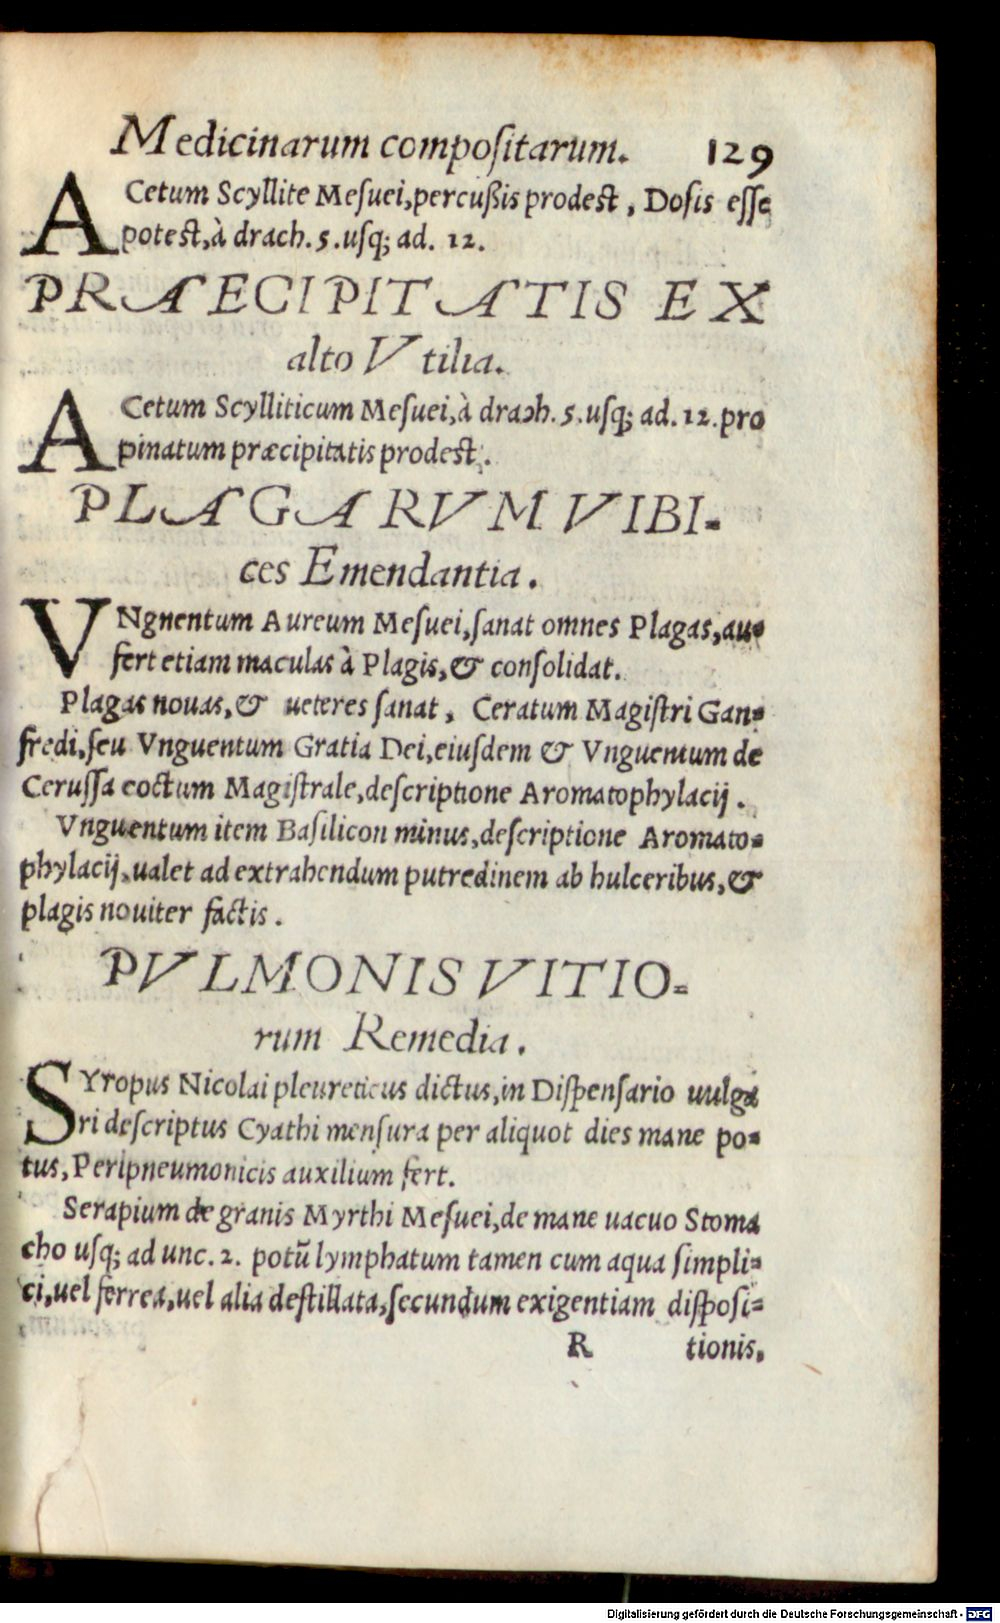 Medicinarum compositarum. 129
ACetum Scyllite Mesuei, percußis prodest, Dosis esse
potest, à drach. 5. usq; ad. 12.
PRAECIPITATIS EX
alto Vtilia.
ACetum Scylliticum Mesuei, à drach. 5. usq; ad. 12. pro
pinatum præcipitatis prodest.
PLAGARVM VIBI-
ces Emendantia.
VNgnentum Aureum Mesuei, sanat omnes Plagas, au-
fert etiam maculas à Plagis, & consolidat.
Plagas nouas, & ueteres sanat, Ceratum Magistri Gan-
fredi, seu Vnguentum Gratia Dei, eiusdem & Vnguentum de
Cerussa coctum Magistrale, descriptione Aromatophylacij.
Vnguentum item Basilicon minus, descriptione Aromato-
phylacij, ualet ad extrahendum putredinem ab hulceribus, &
plagis nouiter factis.
PVLMONIS VITIO-
rum Remedia.
SYropus Nicolai pleureticus dictus, in Dispensario uulga
ri descriptus Cyathi mensura per aliquot dies mane po-
tus, Peripneumonicis auxilium fert.
Serapium de granis Myrthi Mesuei, de mane uacuo Stoma
cho usq; ad unc. 2. potũ lymphatum tamen cum aqua simpli-
ci, uel ferrea, uel alia destillata, secundum exigentiam disposi-
R tionis.
Digitalisierung gefördert durch die Deutsche Forschungsgemeinschaft - DFG